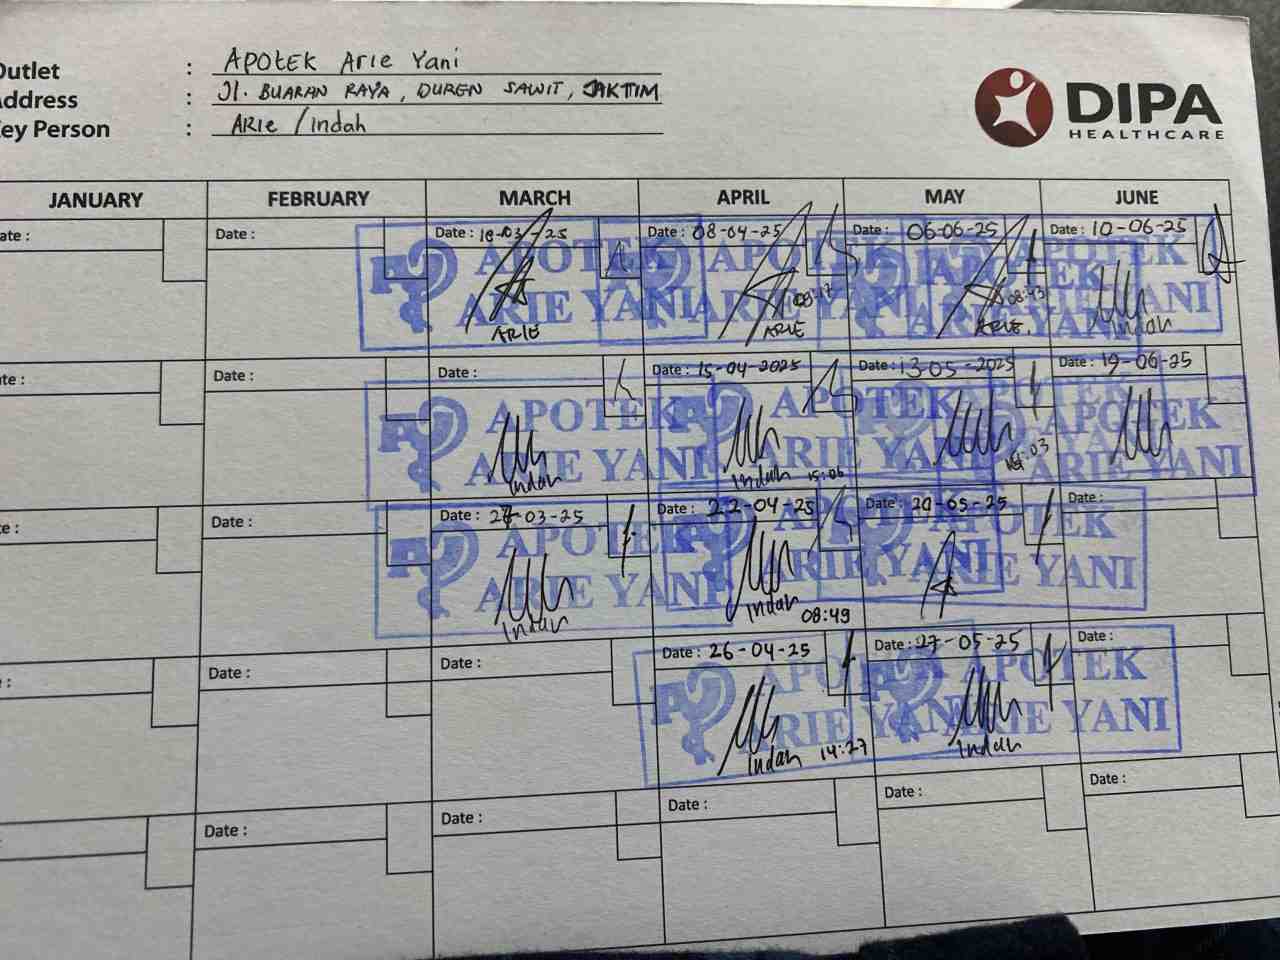 Outlet : APOTEK Arie Yani
Address : Jl. BUARAN RAYA, DUREN SAWIT, JAKTIM
Key Person : ARIE / Indah
DIPA
HEALTHCARE
JANUARY FEBRUARY MARCH APRIL MAY JUNE
ate : Date : Date : -03-25 Date : 08-04-25 Date : 06-06-25 Date : 10-06-25
APOTEK APOTEK APOTEK APOTEK
ARIE YANI ARIE YANI ARIE YANI ARIE YANI
08:17 08:43
ARIE ARIE ARIE. Indah
ate : Date : Date : Date : 15-04-2025 Date : 13-05-2025 Date : 19-06-25
APOTEK APOTEK APOTEK APOTEK
ARIE YANI ARIE YANI ARIE YANI ARIE YANI
Indah Indah 15:06 :03
e : Date : Date : 2-03-25 Date : 22-04-25 Date : 20-05-25 Date :
APOTEK APOTEK APOTEK
ARIE YANI ARIE YANI ARIE YANI
Indah Indah 08:49
: Date : Date : Date : 26-04-25 Date : 27-05-25 Date :
APOTEK APOTEK
ARIE YANI ARIE YANI
Indah 14:27 Indah
Date : Date : Date : Date : Date :